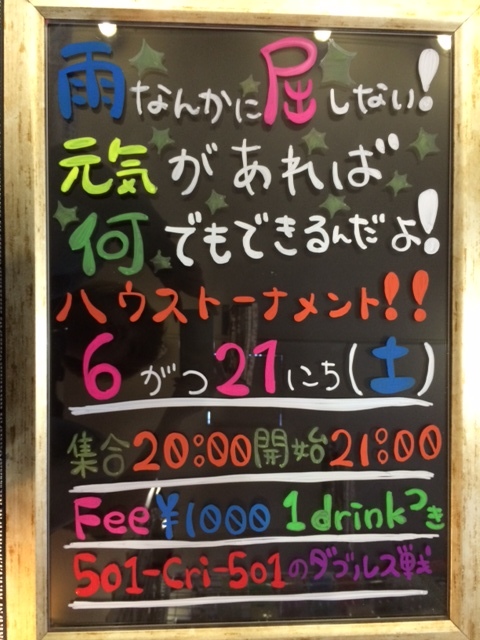 雨なんかに屈しない!
元気があれば
何でもできるんだよ!
ハウストーナメント!!
6がつ21にち(土)
集合20:00開始21:00
Fee¥1000 1drinkつき
501-Cri-501のダブルス戦